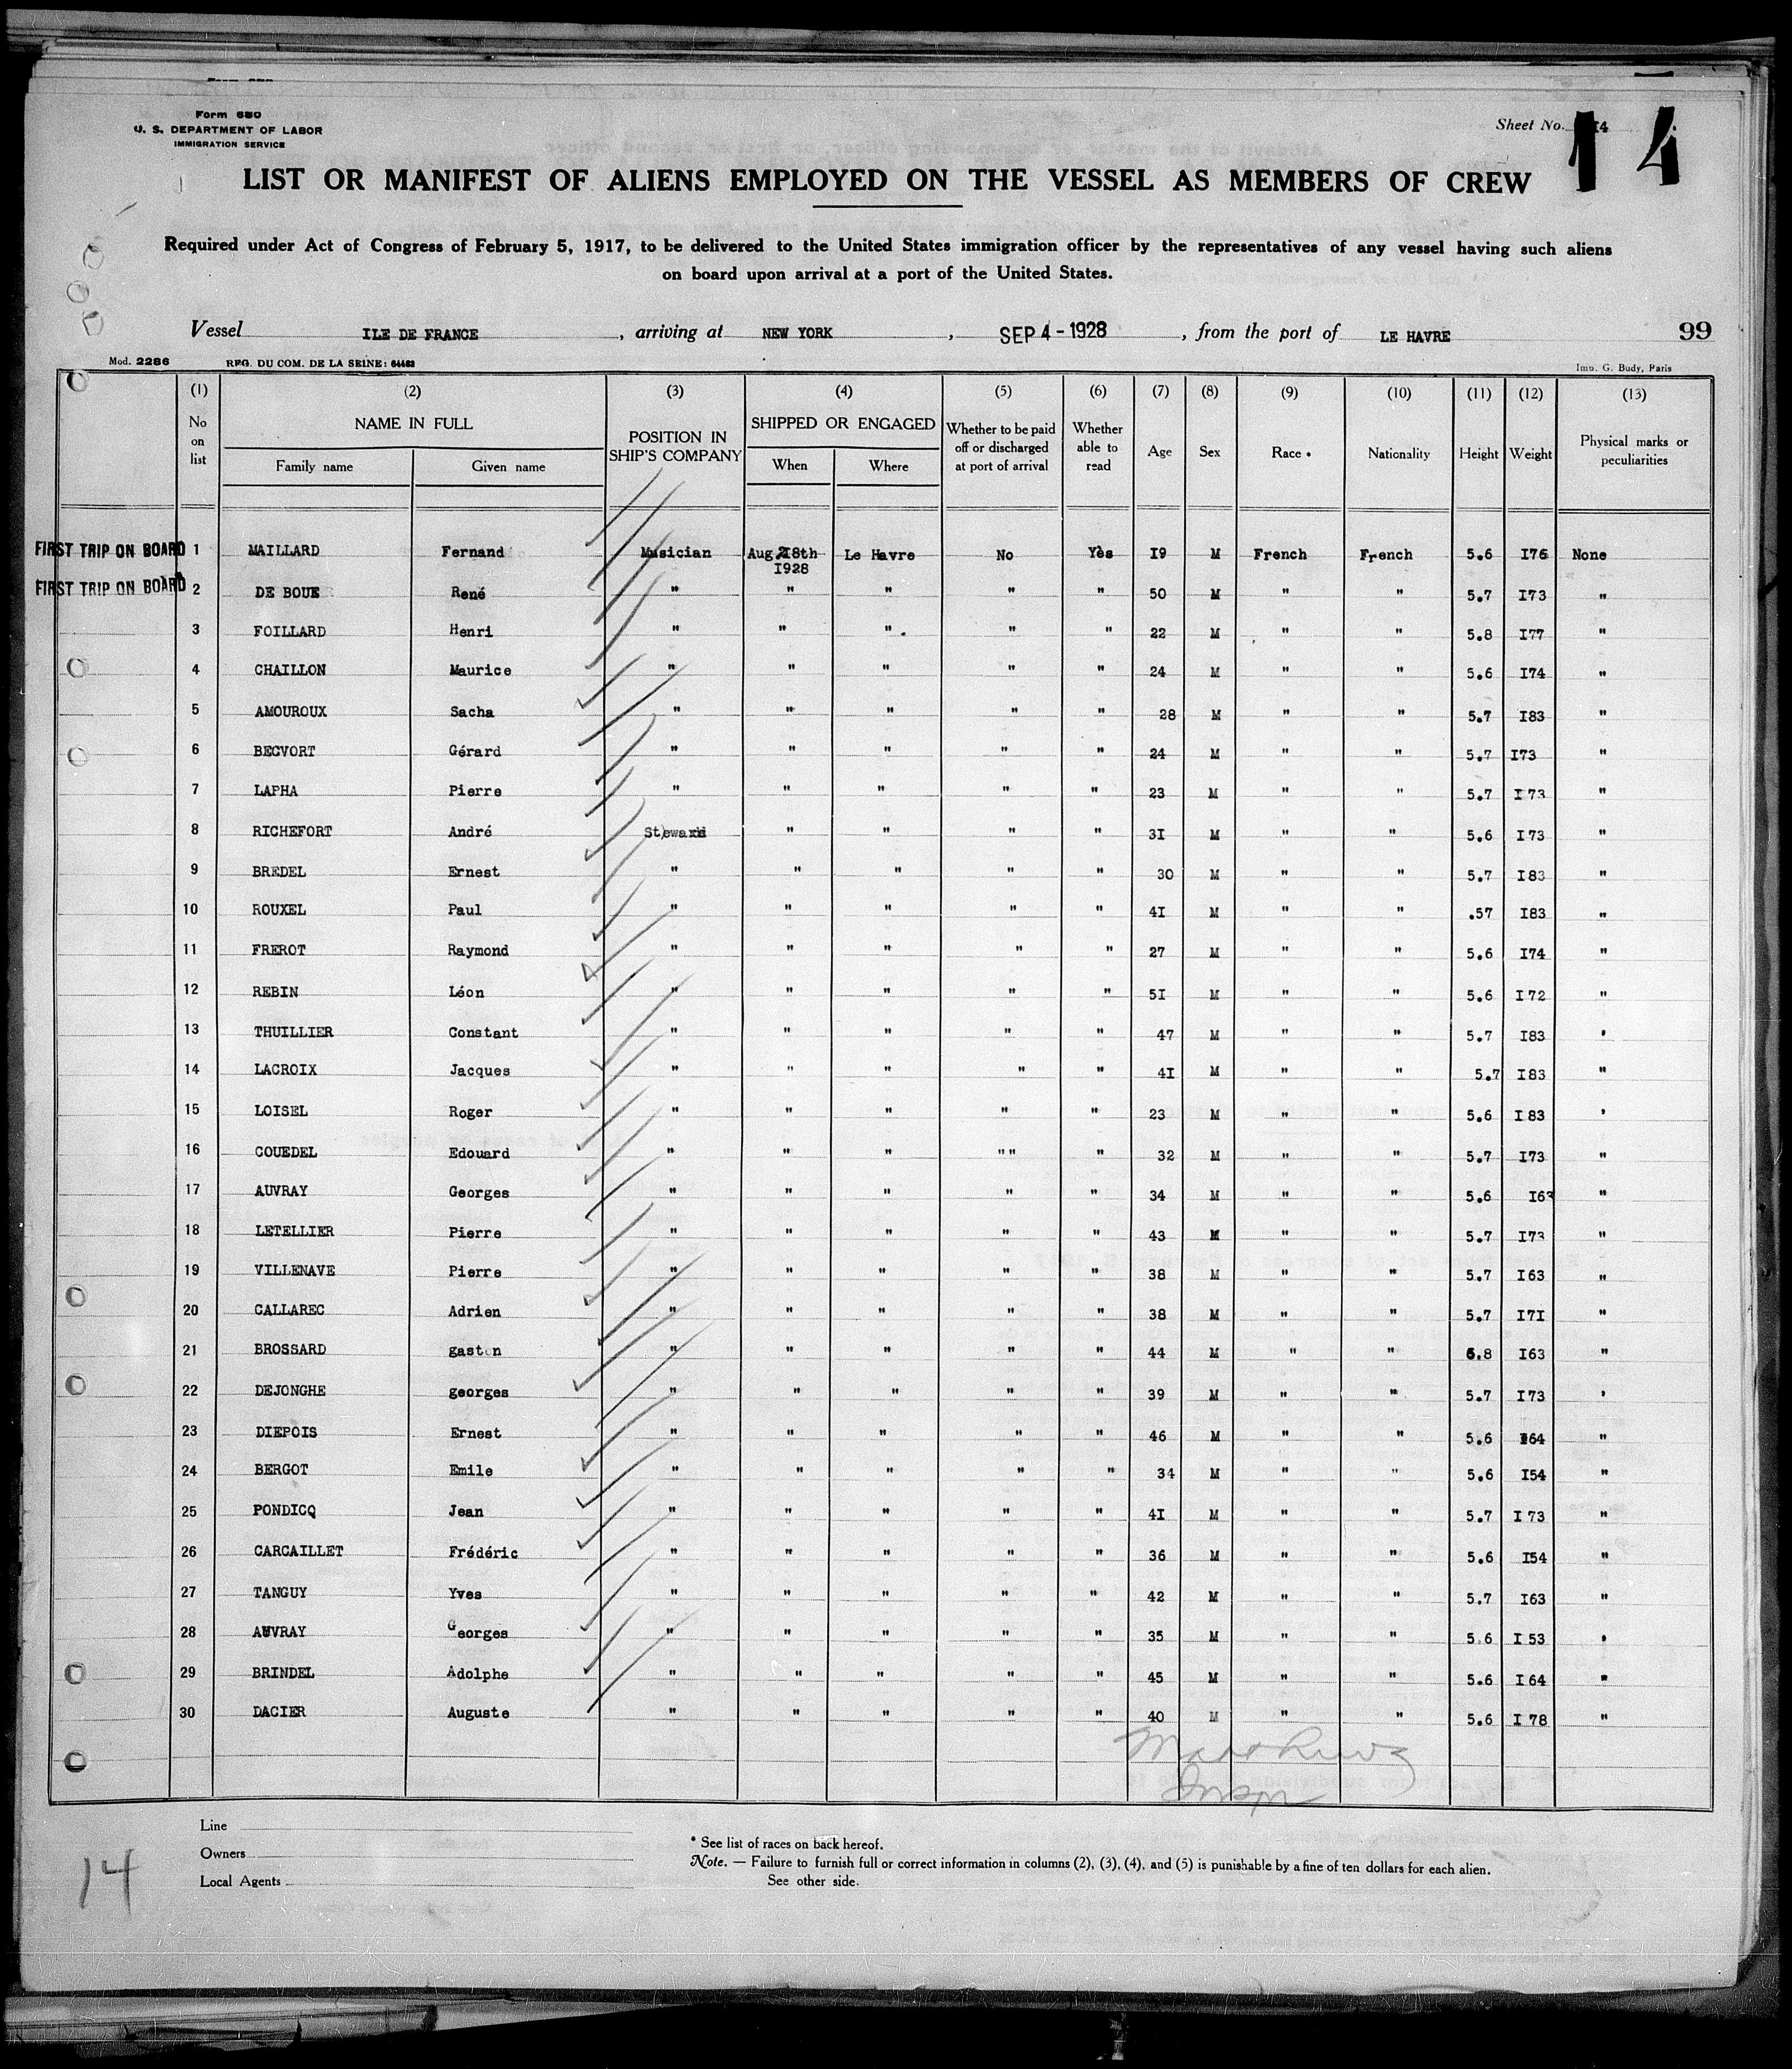 Form 680
U. S. DEPARTMENT OF LABOR
IMMIGRATION SERVICE
Sheet No. 14
14
LIST OR MANIFEST OF ALIENS EMPLOYED ON THE VESSEL AS MEMBERS OF CREW
Required under Act of Congress of February 5, 1917, to be delivered to the United States immigration officer by the representatives of any vessel having such aliens
on board upon arrival at a port of the United States.
Vessel ILE DE FRANCE , arriving at NEW YORK , SEP 4 - 1928 , from the port of LE HAVRE 99
Mod. 2286 REG. DU COM. DE LA SEINE: 64463 Imp. G. Budy, Paris
(1) (2) (3) (4) (5) (6) (7) (8) (9) (10) (11) (12) (13)
No on list NAME IN FULL Family name Given name POSITION IN SHIP'S COMPANY SHIPPED OR ENGAGED When Where Whether to be paid off or discharged at port of arrival Whether able to read Age Sex Race * Nationality Height Weight Physical marks or peculiarities
FIRST TRIP ON BOARD 1 MAILLARD Fernand Musician Aug. 28th 1928 Le Havre No Yes I9 M French French 5.6 I76 None
FIRST TRIP ON BOARD 2 DE BOUE René " " " " " 50 M " " 5.7 I73 "
3 FOILLARD Henri " " " " " 22 M " " 5.8 I77 "
4 CHAILLON Maurice " " " " " 24 M " " 5.6 I74 "
5 AMOUROUX Sacha " " " " " 28 M " " 5.7 I83 "
6 BECVORT Gérard " " " " " 24 M " " 5.7 I73 "
7 LAPHA Pierre " " " " " 23 M " " 5.7 I73 "
8 RICHEFORT André Steward " " " " 3I M " " 5.6 I73 "
9 BREDEL Ernest " " " " " 30 M " " 5.7 I83 "
10 ROUXEL Paul " " " " " 4I M " " .57 I83 "
11 FREROT Raymond " " " " " 27 M " " 5.6 I74 "
12 REBIN Léon " " " " " 5I M " " 5.6 I72 "
13 THUILLIER Constant " " " " " 47 M " " 5.7 I83 '
14 LACROIX Jacques " " " " " 4I M " " 5.7 I83 "
15 LOISEL Roger " " " " " 23 M " " 5.6 I83 '
16 COUEDEL Edouard " " " " " " 32 M " " 5.7 I73 "
17 AUVRAY Georges " " " " " 34 M " " 5.6 I63 "
18 LETELLIER Pierre " " " " " 43 M " " 5.7 I73 "
19 VILLENAVE Pierre " " " " " 38 M " " 5.7 I63 "
20 CALLAREC Adrien " " " " " 38 M " " 5.7 I7I "
21 BROSSARD gaston " " " " " 44 M " " 5.8 I63 "
22 DEJONGHE georges " " " " " 39 M " " 5.7 I73 '
23 DIEPOIS Ernest " " " " " 46 M " " 5.6 I64 "
24 BERGOT Emile " " " " " 34 M " " 5.6 I54 "
25 PONDICQ Jean " " " " " 4I M " " 5.7 I73 "
26 CARCAILLET Frédéric " " " " " 36 M " " 5.6 I54 "
27 TANGUY Yves " " " " " 42 M " " 5.7 I63 "
28 AUVRAY Georges " " " " " 35 M " " 5.6 I53 '
29 BRINDEL Adolphe " " " " " 45 M " " 5.6 I64 "
30 DACIER Auguste " " " " " 40 M " " 5.6 I78 "
Matthews
Insp
Line
Owners
Local Agents
* See list of races on back hereof.
Note. — Failure to furnish full or correct information in columns (2), (3), (4), and (5) is punishable by a fine of ten dollars for each alien.
See other side.
14